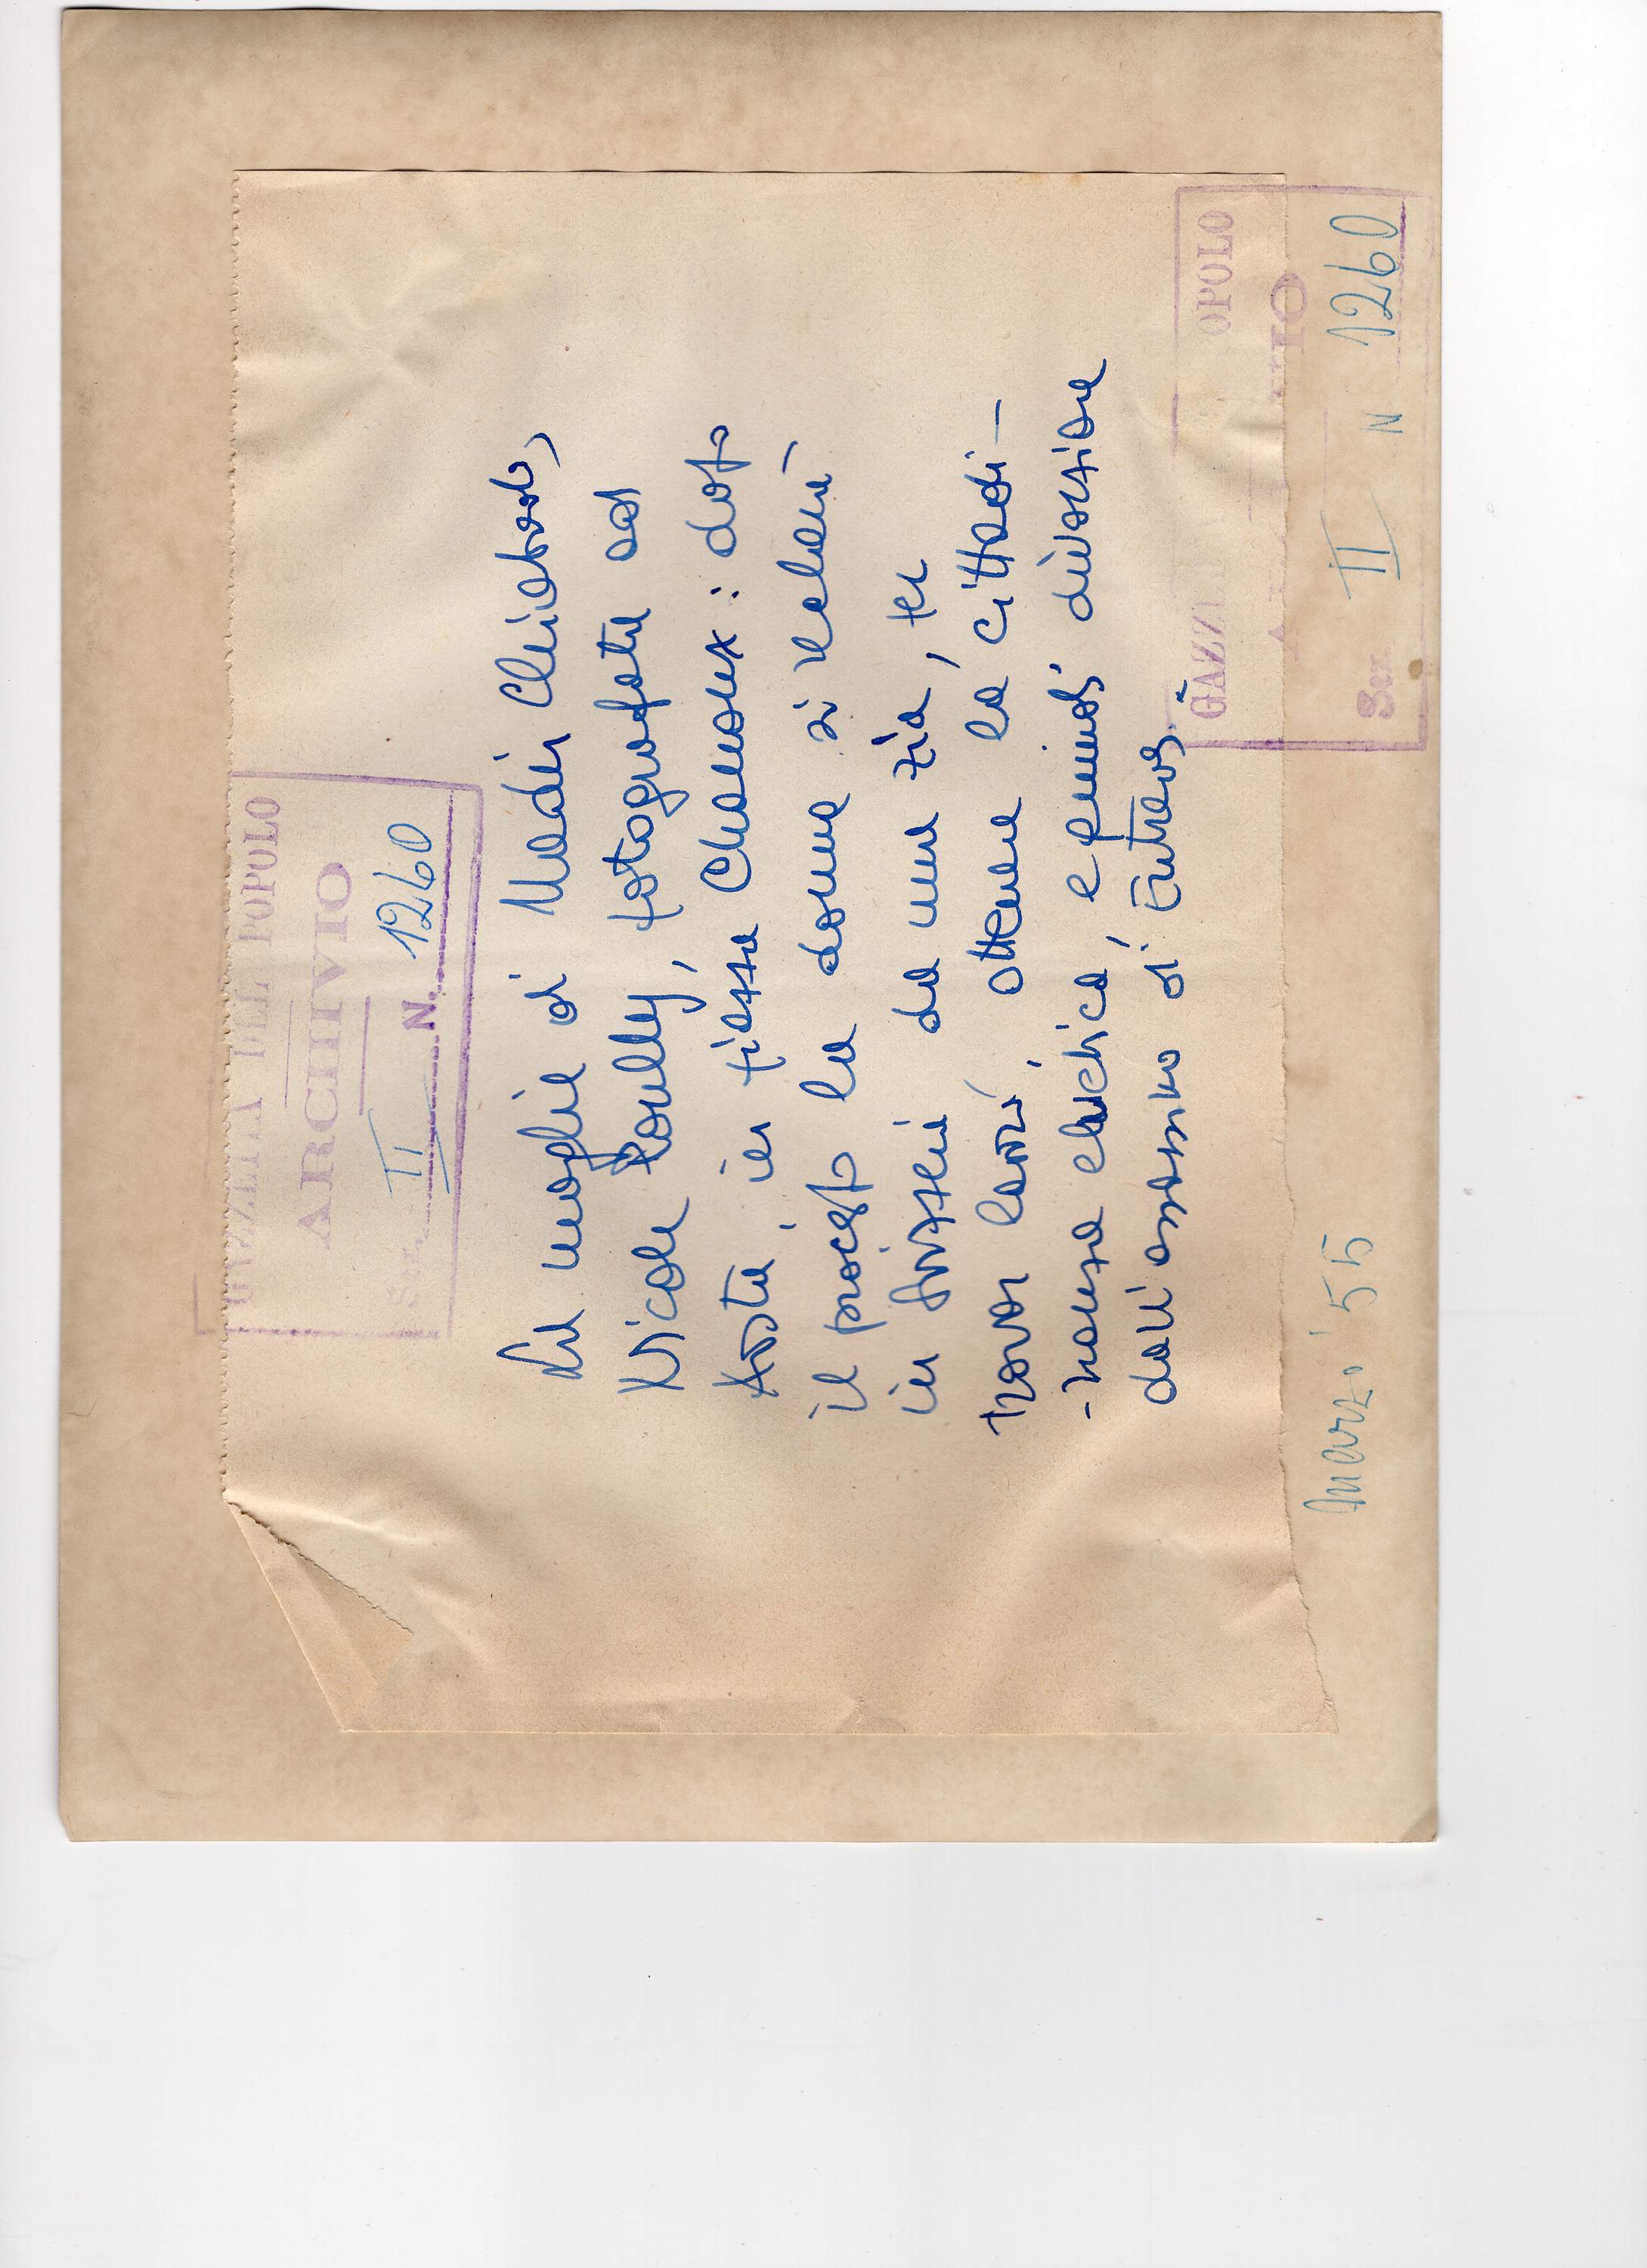 GAZZETTA DEL POPOLO
ARCHIVIO
Sez. II N. 1260
La moglie di Nadir Chiabodo,
Nicole Roulley, fotografata ad
Aosta, in piazza Chanoux: dopo
il processo la donna si recherà
in Svizzera da una zia, per
trovar lavoro, ottenere la cittadi-
-nanza elvetica, e quindi divorziare
dall'assassino di Entrèves.
GAZZE OPOLO
A IO
Sez. II N 1260
marzo '55